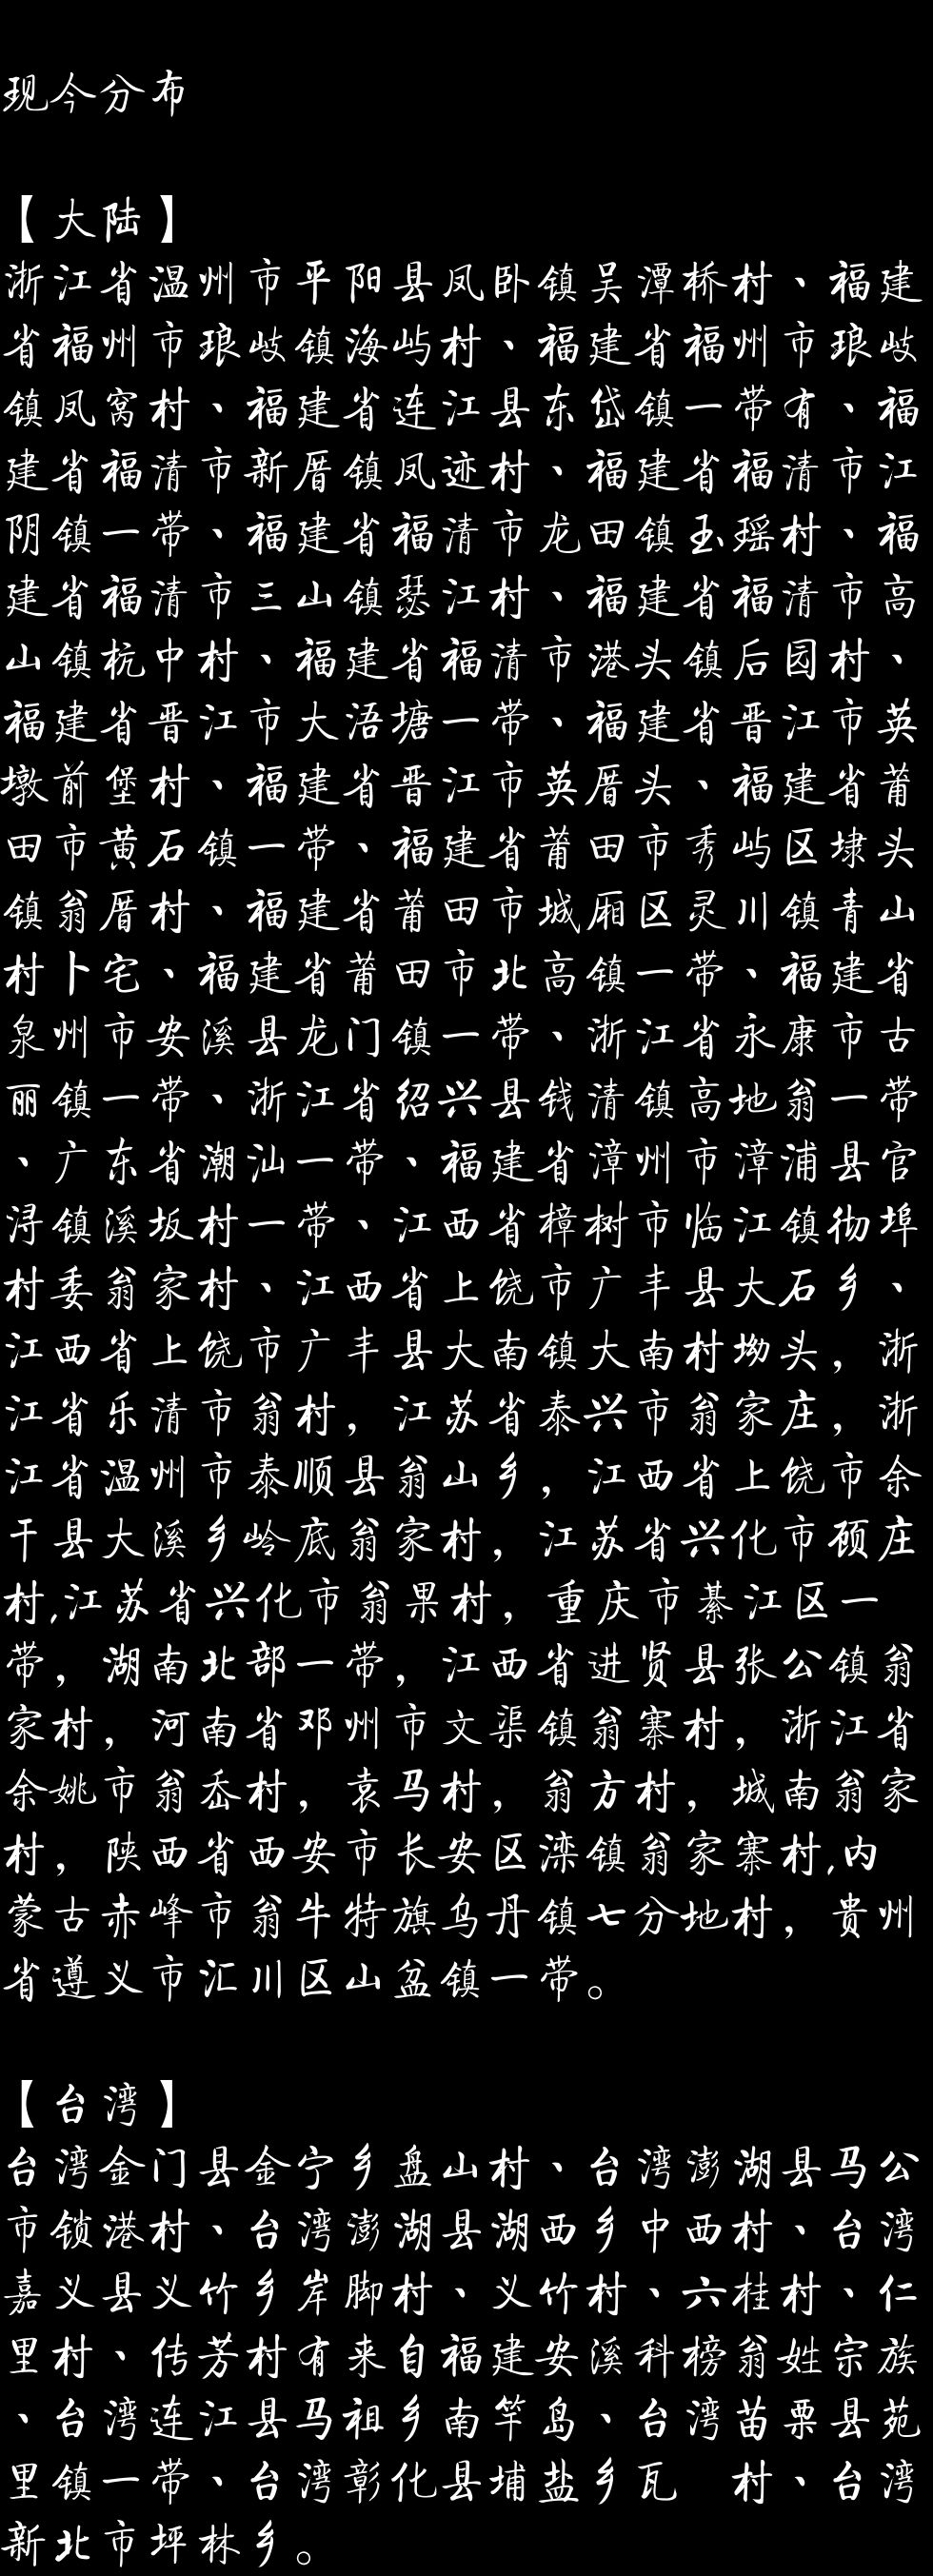 现今分布
【大陆】
浙江省温州市平阳县凤卧镇吴潭桥村、福建
省福州市琅岐镇海屿村、福建省福州市琅岐
镇凤窝村、福建省连江县东岱镇一带有、福
建省福清市新厝镇凤迹村、福建省福清市江
阴镇一带、福建省福清市龙田镇玉瑶村、福
建省福清市三山镇瑟江村、福建省福清市高
山镇杭中村、福建省福清市港头镇后园村、
福建省晋江市大浯塘一带、福建省晋江市英
墩前堡村、福建省晋江市英厝头、福建省莆
田市黄石镇一带、福建省莆田市秀屿区埭头
镇翁厝村、福建省莆田市城厢区灵川镇青山
村卜宅、福建省莆田市北高镇一带、福建省
泉州市安溪县龙门镇一带、浙江省永康市古
丽镇一带、浙江省绍兴县钱清镇高地翁一带
、广东省潮汕一带、福建省漳州市漳浦县官
浔镇溪坂村一带、江西省樟树市临江镇彻埠
村委翁家村、江西省上饶市广丰县大石乡、
江西省上饶市广丰县大南镇大南村坳头，浙
江省乐清市翁村，江苏省泰兴市翁家庄，浙
江省温州市泰顺县翁山乡，江西省上饶市余
干县大溪乡岭底翁家村，江苏省兴化市顾庄
村,江苏省兴化市翁果村，重庆市綦江区一
带，湖南北部一带，江西省进贤县张公镇翁
家村，河南省邓州市文渠镇翁寨村，浙江省
余姚市翁岙村，袁马村，翁方村，城南翁家
村，陕西省西安市长安区滦镇翁家寨村,内
蒙古赤峰市翁牛特旗乌丹镇七分地村，贵州
省遵义市汇川区山盆镇一带。
【台湾】
台湾金门县金宁乡盘山村、台湾澎湖县马公
市锁港村、台湾澎湖县湖西乡中西村、台湾
嘉义县义竹乡岸脚村、义竹村、六桂村、仁
里村、传芳村有来自福建安溪科榜翁姓宗族
、台湾连江县马祖乡南竿岛、台湾苗栗县苑
里镇一带、台湾彰化县埔盐乡瓦　村、台湾
新北市坪林乡。